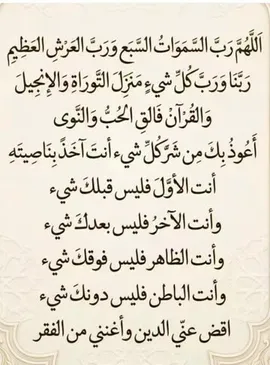 اَللَّهُمَّ رَبَّ السَّمَوَاتُ السَّبَعِ وَرَبَّ العَرْشِ العَظِيمِ
رَبَّنَا وَرَبَّ كُلِّ شيءٍ مَنَزِلَ التَّورَاةِ وَالإِنْجِيلَ
وَالقُرْآنْ فَالقِ الحُبُّ وَالنَّوى
أَعُوذُ بِكَ مِن شَرَّ كُلِّ شيء أنتَ آخَذَّ بِنَاصِيتَهِ
أنت الأوَّلَ فليس قبلكَ شيء
وأنت الآخرُ فليس بعدكَ شيء
وأنت الظاهر فليس فوقكَ شيء
وأنت الباطن فليس دونكَ شيء
اقض عنّي الدين وأغنني من الفقر